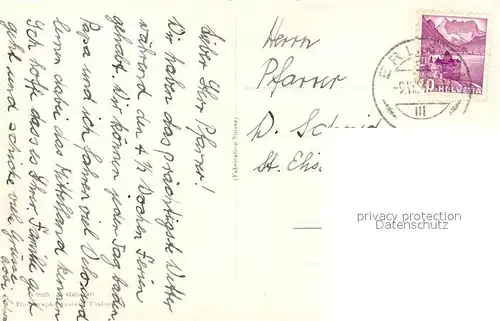 Lieber Herr Pfarrer!
Wir haben das prächtigste Wetter
während den 4½ Wochen Ferien
gehabt. Wir können jeden Tag baden.
Papa und ich fahren viel Velo und
lernen dabei das Hinterland kennen.
Ich hoffe dass es Ihrer Familie gut
geht und schicke viele Grüsse
(Fabrication Suisse)
Herrn
Pfarrer
D. Schmid
St.
HELVETIA
III
privacy protection
Datenschutz